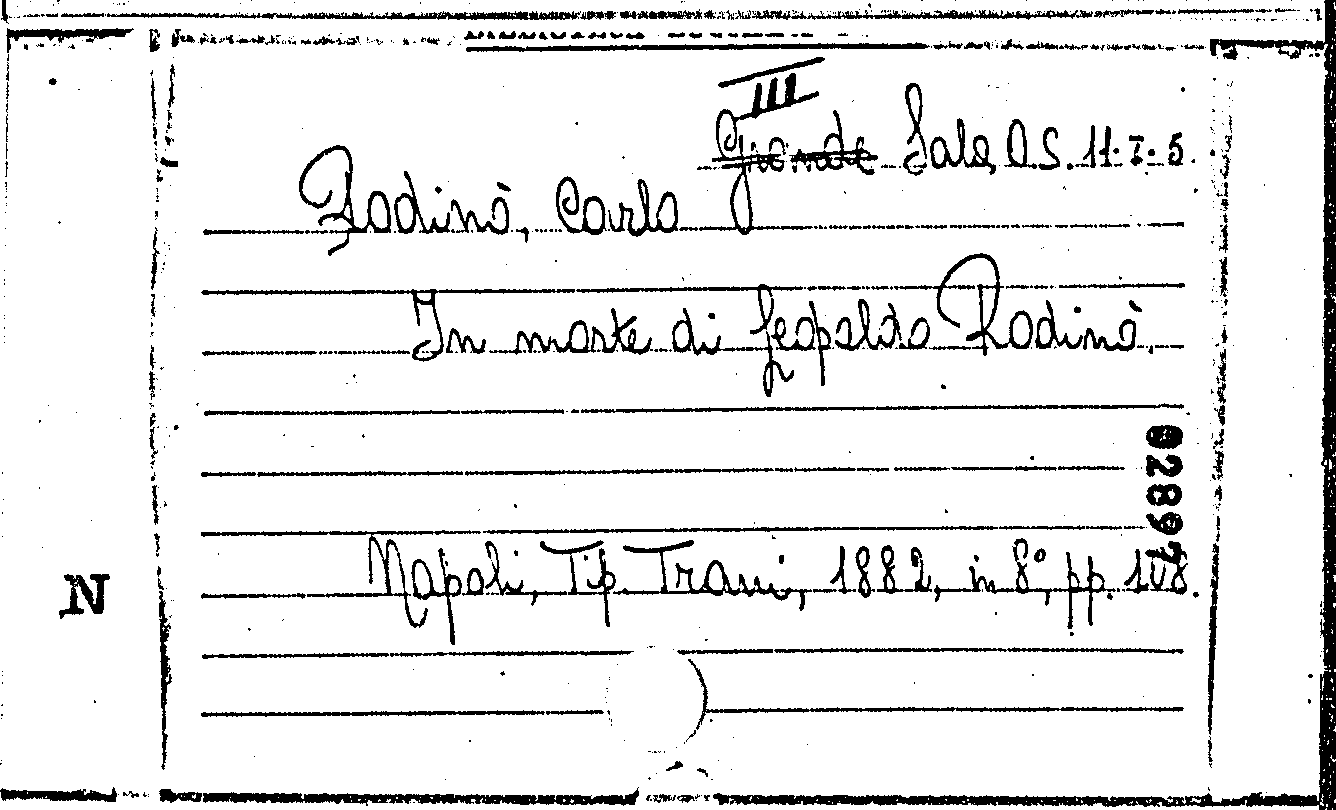 III
Grande Sala O S. 11. I. 5.
Rodinò, Carlo
In morte di Leopoldo Rodinò.
02897
Napoli, Tip. Trani, 1882, in 8°, pp. 108.
N